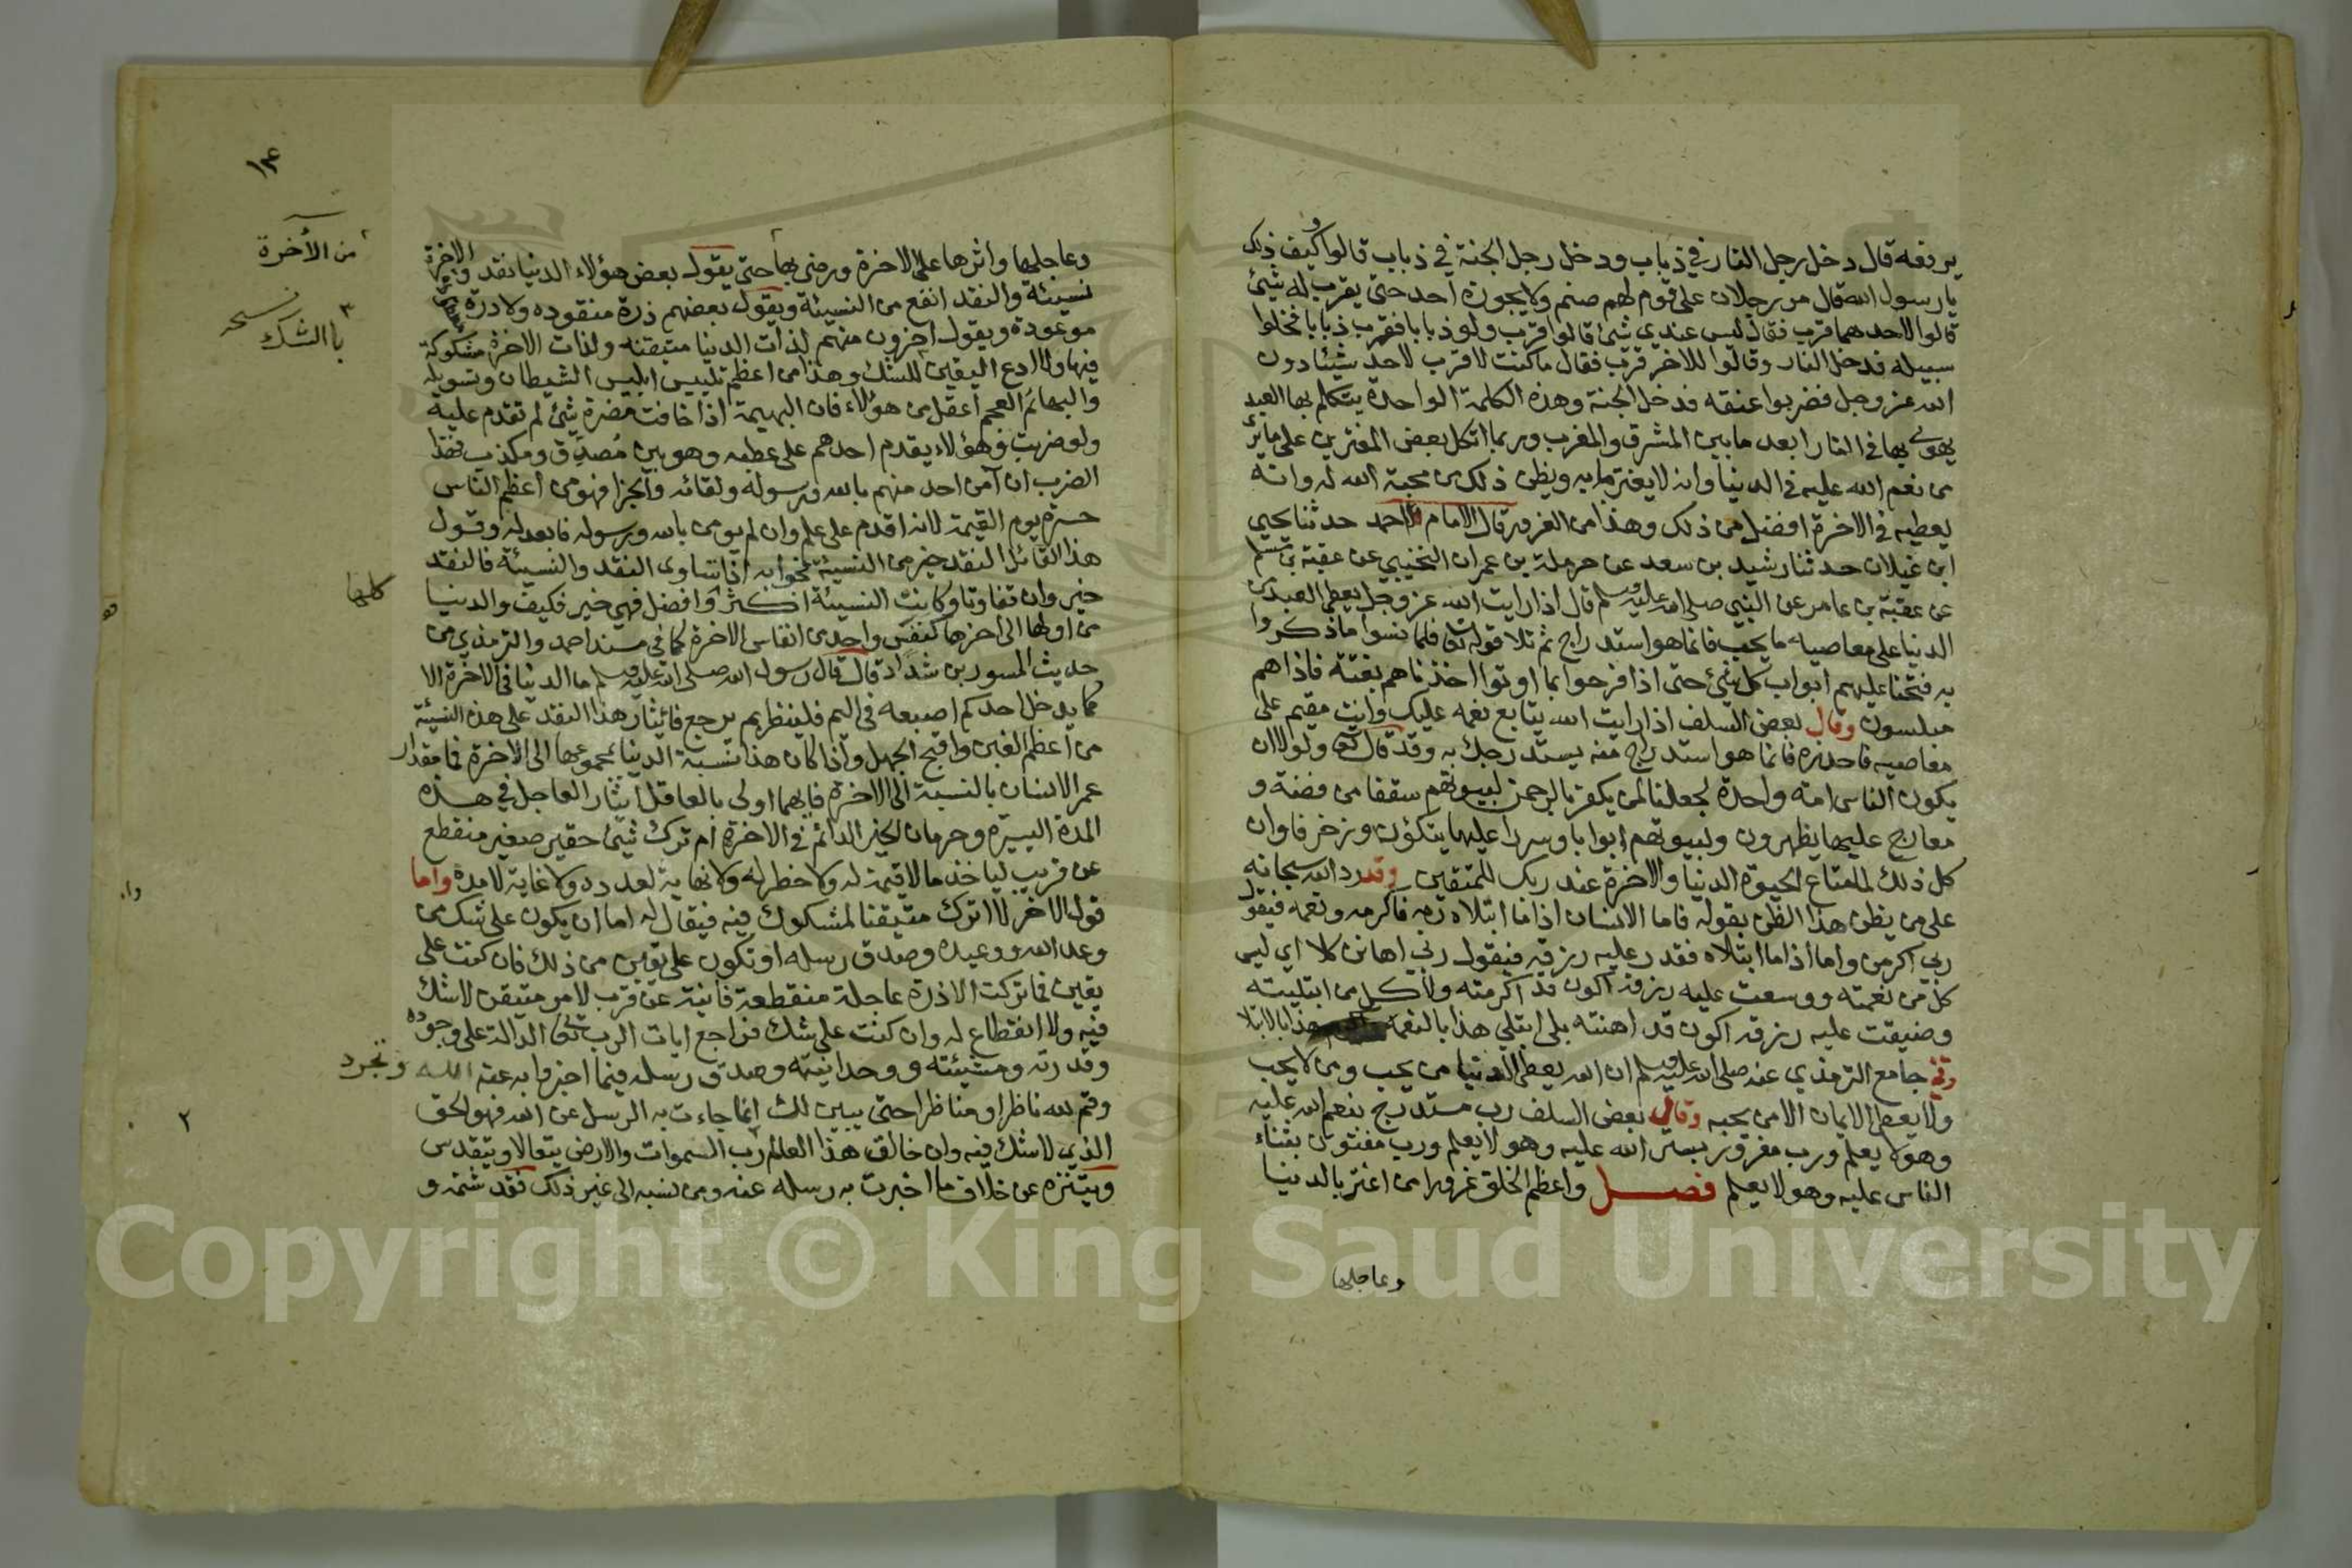 يرفعه قال دخل رجل النار في ذباب ودخل رجل الجنة في ذباب قالوا وكيف ذلك
يا رسول الله قال مر رجلان على قوم لهم صنم ولا يجوزه احد حتى يقرب له شئ
قالوا لاحدهما قرب فقال ليس عندي شئ قالوا قرب ولو ذبابا فقرب ذبابا فخلوا
سبيله فدخل النار وقالوا للاخر قرب فقال ما كنت لاقرب لاحد شيئا دون
الله عز وجل فضربوا عنقه فدخل الجنة وهذه الكلمة الواحدة يتكلم بها العبد
يهوي بها في النار ابعد ما بين المشرق والمغرب وربما اتكل بعض المغترين على ما يرى
من نعم الله عليه في الدنيا وانه لا يغتر ما به ويظن ذلك من محبة الله له وانه
يعطيه في الاخرة افضل من ذلك وهذا من الغرور قال الامام احمد حدثنا يحيى
ابن غيلان حدثنا رشيد بن سعد عن حرملة بن عمران التجيبي عن عقبة بن مسلم
عن عقبة بن عامر عن النبي صلى الله عليه وسلم قال اذا رايت الله عز وجل يعطي العبد من
الدنيا على معاصيه ما يحب فانما هو استدراج ثم تلا قوله تعالى فلما نسوا ما ذكروا
به فتحنا عليهم ابواب كل شئ حتى اذا فرحوا بما اوتوا اخذناهم بغتة فاذا هم
مبلسون وقال بعض السلف اذا رايت الله يتابع نعمه عليك وانت مقيم على
معاصيه فاحذره فانما هو استدراج منه يستدرجك به وقد قال تعالى ولولا ان
يكون الناس امة واحدة لجعلنا لمن يكفر بالرحمن لبيوتهم سقفا من فضة و
معارج عليها يظهرون ولبيوتهم ابوابا وسررا عليها يتكؤن وزخرفا وان
كل ذلك لما متاع الحيوة الدنيا والاخرة عند ربك للمتقين وقد رد الله سبحانه
على من يظن هذا الظن بقوله فاما الانسان اذا ما ابتلاه ربه فاكرمه ونعمه فيقول
ربي اكرمن واما اذا ما ابتلاه فقدر عليه رزقه فيقول ربي اهانن كلا اي ليس
كل من نعمته ووسعت عليه رزقه اكون قد اكرمته ولا كل من ابتليته
وضيقت عليه رزقه اكون قد اهنته بلى ابتلي هذا بالنعمة هذا بالابتلا
وفي جامع الترمذي عنه صلى الله عليه وسلم ان الله يعطي الدنيا من يحب ومن لا يحب
ولا يعطي الايمان الا من يحبه وقال بعض السلف رب مستدرج بنعم الله عليه
وهو لا يعلم ورب مغرور بستر الله عليه وهو لا يعلم ورب مفتون بثناء
الناس عليه وهو لا يعلم فصل واعظم الخلق غرورا من اغتر بالدنيا
وعاجلها
١٤
وعاجلها واثرها على الاخرة ورضي بها حتى يقول بعض هؤلاء الدنيا نقد والاخرة
نسيئة والنقد انفع من النسيئة ويقول بعضهم ذرة منقوده ولا درة
موعودة ويقول اخرون منهم لذات الدنيا متيقنه ولذات الاخرة مشكوكة
فيها ولا ادع اليقين للشك وهذا من اعظم تلبيس ابليس الشيطان وتسويله
والبهائم العجم اعقل من هؤلاء فان البهيمة اذا خافت مضرة شئ لم تقدم عليه
ولو ضربت وهؤلاء يقدم احدهم على عطبه وهو بين مصدق ومكذب فهذا
الضرب ان آمن احد منهم بالله ورسوله ولقائه والجزا فهو من اعظم الناس
حسرة يوم القيمة لانه اقدم على علم وان لم يومن بالله ورسوله فابعد له وقول
هذا القائل النقد خير من النسيئة فجوابه اذا تساوى النقد والنسيئة فالنقد
خير وان تفاوتا وكانت النسيئة اكثر وافضل فهي خير فكيف والدنيا كلها
من اولها الى اخرها كنفس واحد من انفاس الاخرة كما في مسند احمد والترمذي من
حديث المسور بن شداد قال قال رسول الله صلى الله عليه وسلم ما الدنيا في الاخرة الا
كما يدخل احدكم اصبعه في اليم فلينظر بم يرجع فائيثار هذا النقد على هذه النسيئة
من اعظم الغبن واقبح الجهل واذا كان هذا نسبة الدنيا بمجموعها الى الاخرة فما مقدار
عمر الانسان بالنسبة الى الاخرة فايهما اولى بالعاقل ايثار العاجل في هذه
المدة اليسيرة وحرمان الخير الدائم في الاخرة ام ترك شئ حقير صغير منقطع
عن قريب لياخذ ما لا قيمة له ولا خطر له ولا نهاية لعدده ولا غاية لامده واما
قول الاخر لا اترك متيقنا لمشكوك فيه فيقال له اما ان يكون على شك من
وعد الله ووعيده وصدق رسله او تكون على يقين من ذلك فان كنت على
يقين فما تركت الا ذرة عاجلة منقطعة فانية عن قرب لامر متيقن لا شك
فيه ولا انقطاع له وان كنت على شك فراجع ايات الرب تعالى الدالة على وجوده
وقدرته ومشيئته ووحدانيته وصدق رسله فيما اخبروا به عنه الله وتجرد
وقم لله ناظرا او مناظرا حتى يبين لك انما جاءت به الرسل عن الله فهو الحق
الذي لا شك فيه وان خالق هذا العالم رب السموات والارض يتعالا ويتقدس
ويتنزه عن خلاف ما اخبرت به رسله عنه ومن نسبه الى غير ذلك فقد شتمه و
من الآخرة
باالشك
Copyright © King Saud University